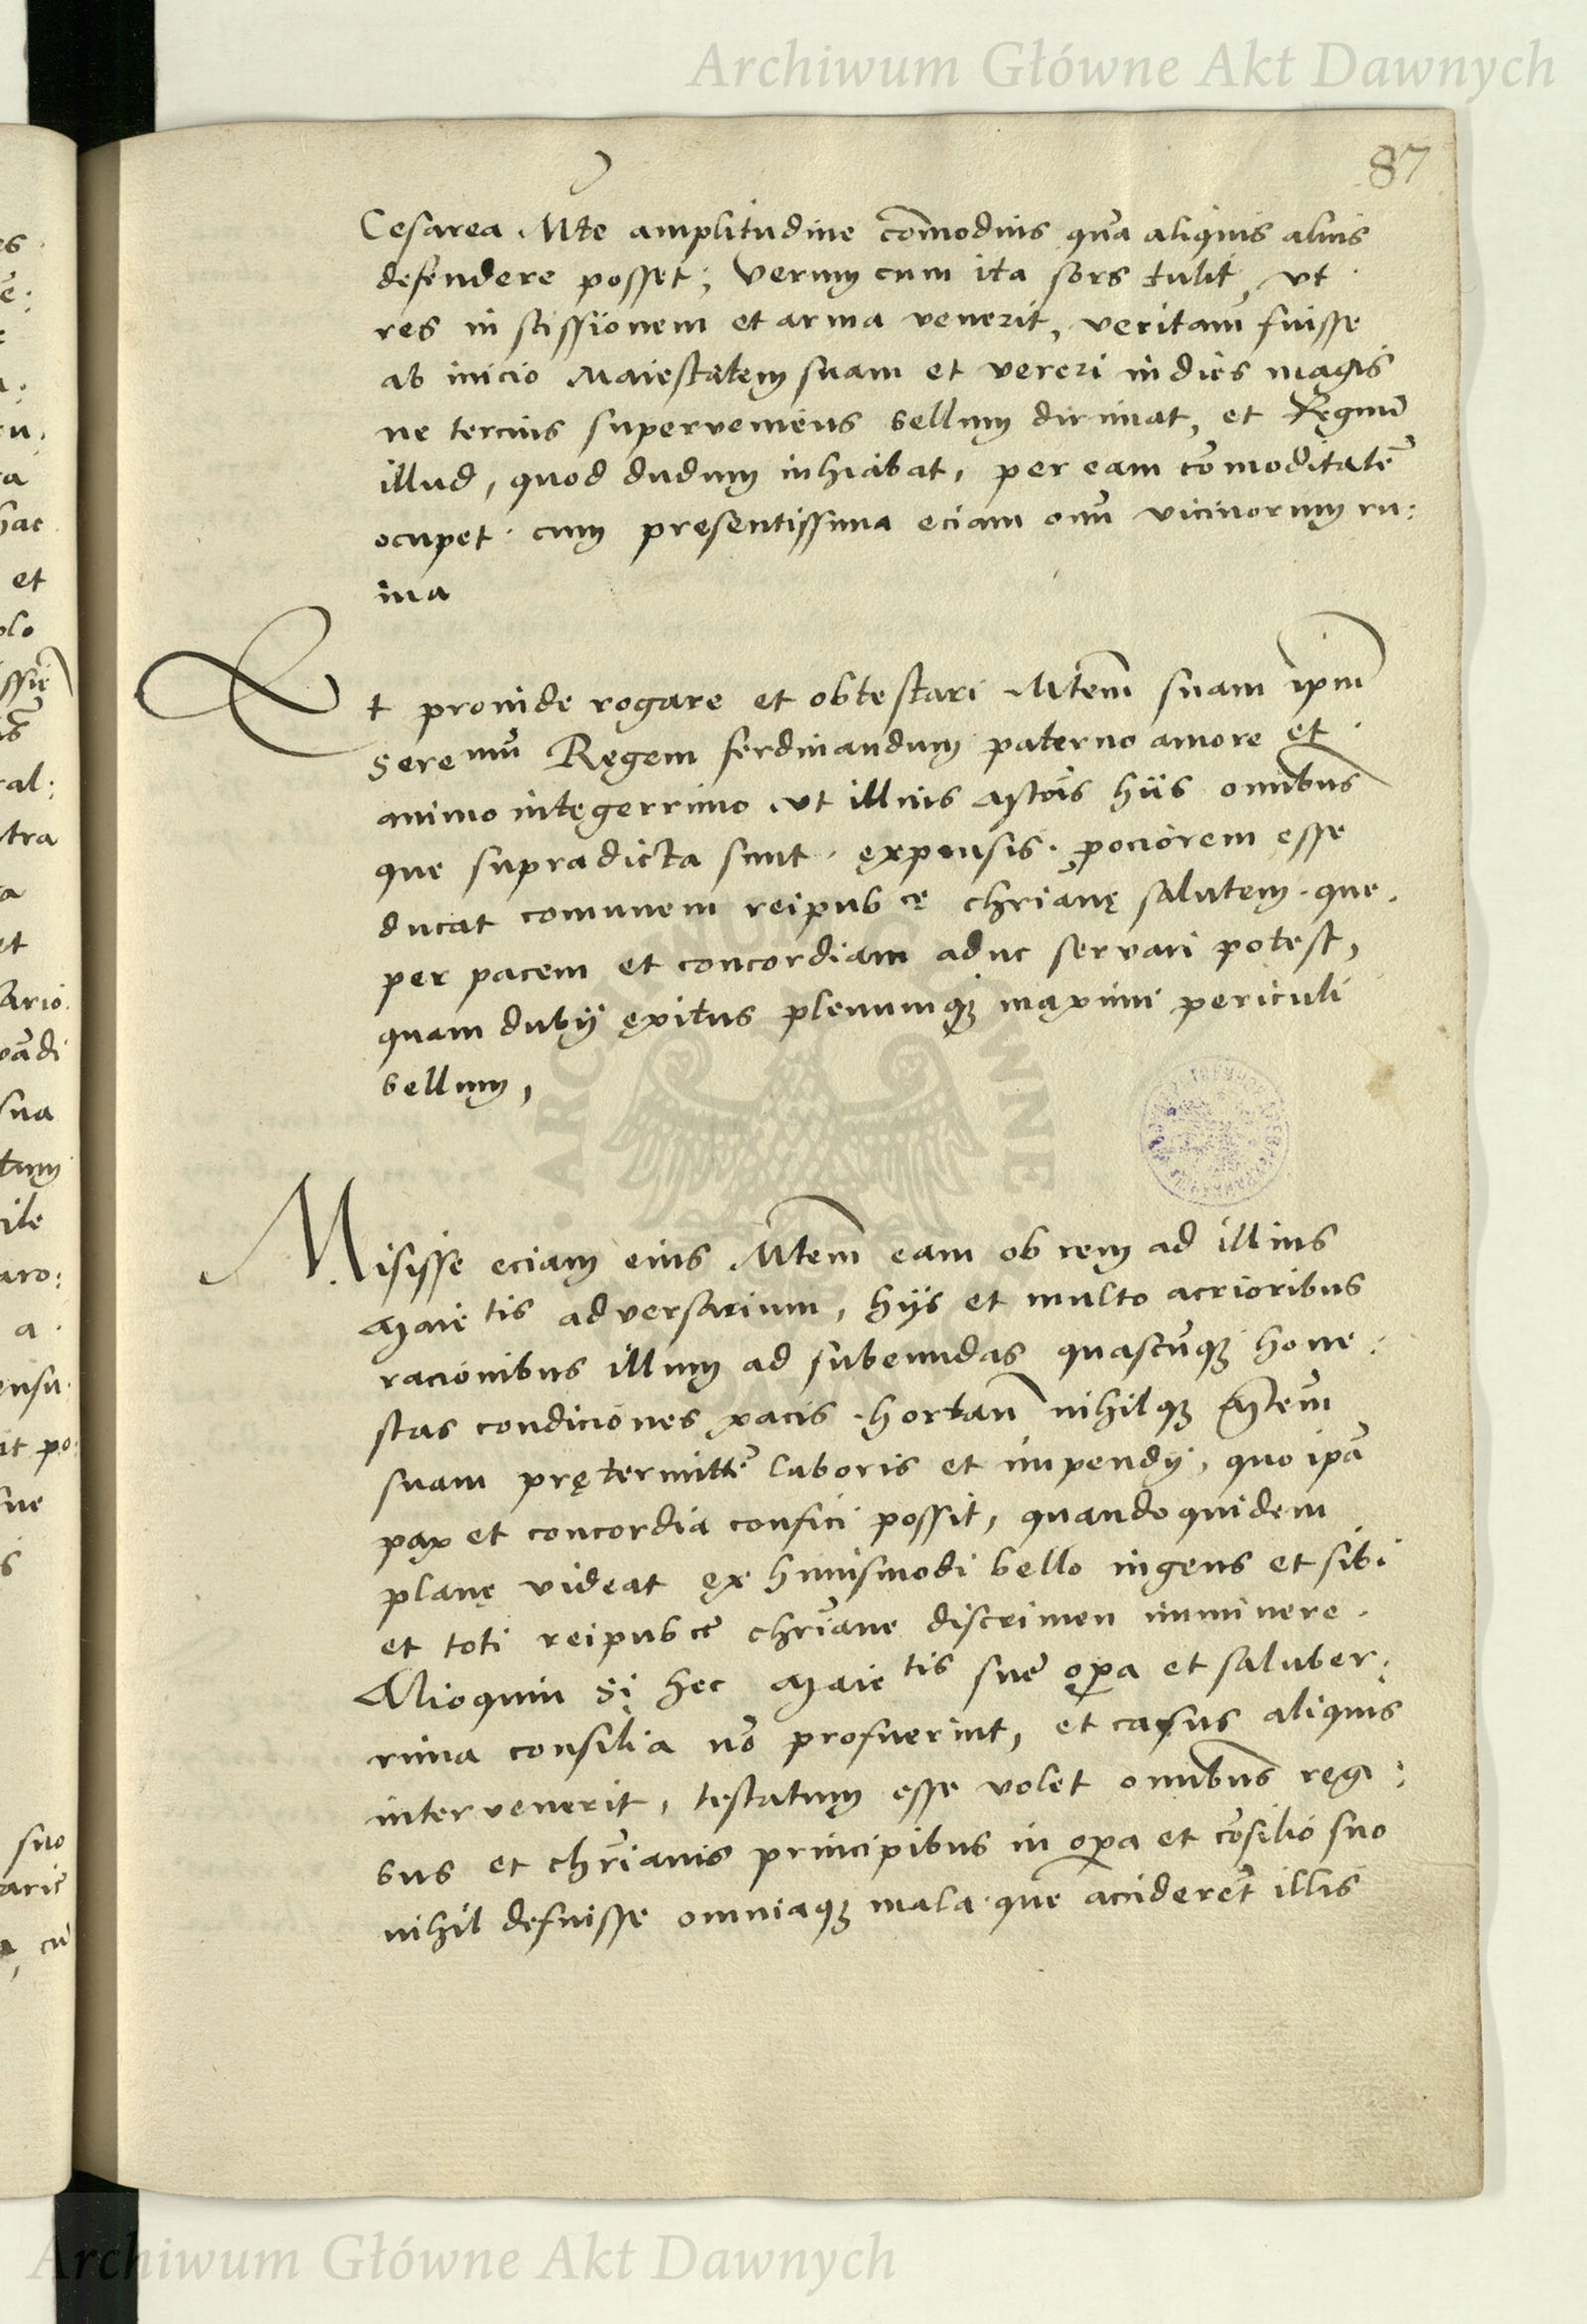 Archiwum Główne Akt Dawnych
87
Cesarea Mte amplitudine com̄odius quā aliquis alius
defendere posset; Verum cum ita sors tulit, vt
res in scissionem et arma venerit, veritam̄ fuisse
ab inicio Maiestatem suam et vereri indies magis
ne tercius superveniens bellum dirimat, et Regnū
illud, quod dudum inhiabat, per eam com̄oditatē
ocupet. cum presentissima eciam omū vicinorum ru:
ina
Et proinde rogare et obtestari Mtem̄ suam ipm̄
Seremū Regem ferdinandum paterno amore et
animo integerrimo vt illius Mtis hiis omībus
que supradicta sunt. expensis. pociorem esse
ducat comunem reipubce chrianę salutem. que.
per pacem et concordiam aduc servari potest,
quam dubij exitus plenumqȝ maximi periculi
bellum,
Misisse eciam eius Mtem̄ eam ob rem ad illius
Maietis adversarium, hijs et multo acrioribus
racionibus illum ad subeundas quascūqȝ hone:
stas condiciones pacis hortan̄ nihilqȝ Mtem̄
suam prętermittē laboris et impendij, quo ipā
pax et concordia confici possit, quandoquidem
planę videat ex huiusmodi bello ingens et sibi
et toti reipubce chriane discrimen imminere.
Alioquin si hec Maietis sue opa et saluber:
rima consilia nō profuerint, et casus aliquis
intervenerit, testatum esse volet omībus regi:
bus et chrianis principibus in opa et cōsilio suo
nihil defuisse omniaqȝ mala que acciderēt illis
ARCHIWUM GŁÓWNE AKT DAWNYCH
Archiwum Główne Akt Dawnych